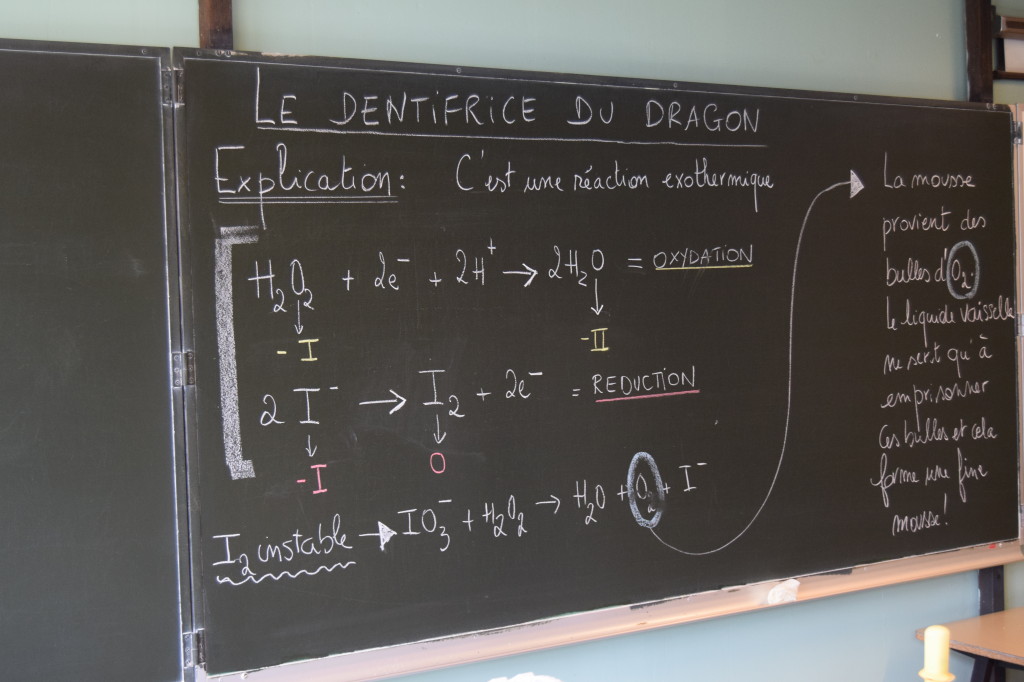 LE DENTIFRICE DU DRAGON
Explication : C'est une réaction exothermique
H₂O₂ + 2e⁻ + 2H⁺ → 2H₂O = OXYDATION
↓ ↓
-I -II
2 I⁻ → I₂ + 2e⁻ = REDUCTION
↓ ↓
-I 0
I₂ instable → IO₃⁻ + H₂O₂ → H₂O + O₂ + I⁻
La mousse
provient des
bulles d'O₂.
Le liquide vaisselle
ne sert qu'à
emprisonner
ces bulles et cela
forme une fine
mousse!